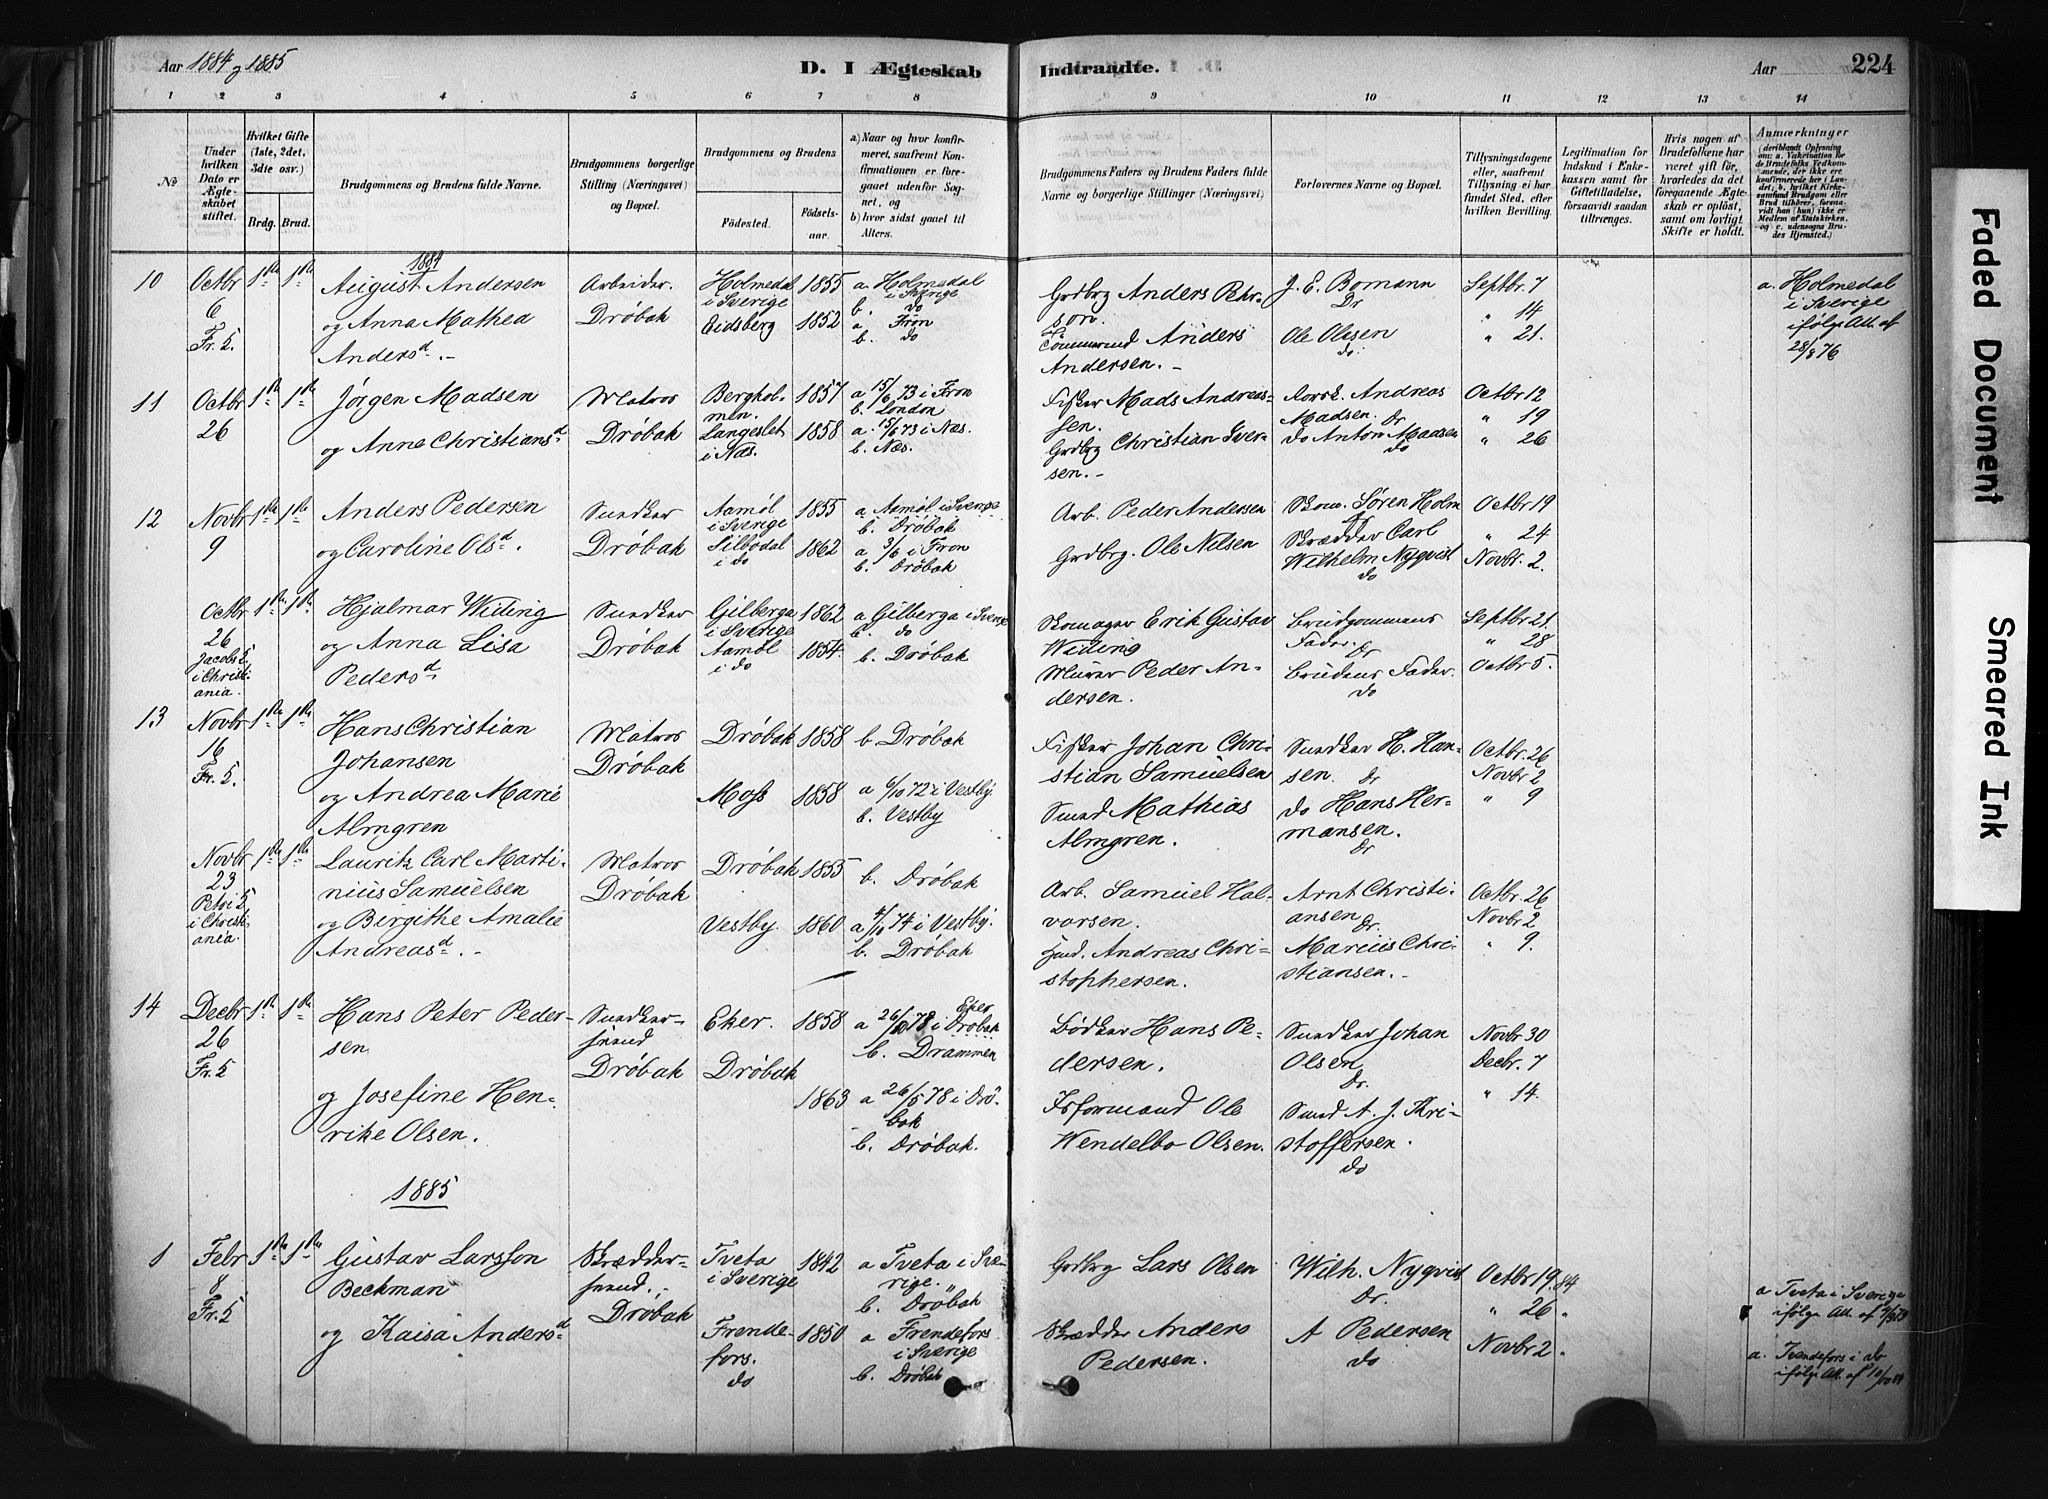 Aar 1884 og 1885
D. I Ægteskab Indtraadte.
Aar
224
1 2 3 4 5 6 7 8 9 10 11 12 13 14
№
Under hvilken Dato er Ægteskabet stiftet.
Hvilket Gifte (1ste, 2det, 3die osv.)
Brdg. Brud.
Brudgommens og Brudens fulde Navne.
Brudgommens borgerlige Stilling (Næringsvei) og Bopæl.
Brudgommens og Brudens
Födested.
Födselsaar.
a) Naar og hvor konfirmeret, saafremt Konfirmationen er foregaaet udenfor Sognet, og
b) hvor sidst gaaet til Alters.
Brudgommens Faders og Brudens Faders fulde Navne og borgerlige Stillinger (Næringsvei)
Forlovernes Navne og Bopæl.
Tillysningsdagene eller, saafremt Tillysning ei har fundet Sted, efter hvilken Bevilling.
Legitimation for Indskud i Enkekassen samt for Giftetilladelse, forsaavidt saadan tiltrænges.
Hvis nogen af Brudefolkene har været gift før, hvorledes da det foregaaende Ægteskab er oplöst, samt om lovligt Skifte er holdt.
Anmærkninger
(deriblandt Oplysning om: a. Vakcination for de Brudefolks Vedkommende, der ikke ere konfirmerede her i Landet; b. hvilket Kirkesamfund Brudgom eller Brud tilhörer, forsaavidt han (hun) ikke er Medlem af Statskirken, og c. udensogns Brudes Hjemsted.)
1884
10 Octbr 6 Fr. K. 1ste 1ste
August Andersen
og Anna Mathea
Andersd. -
Arbeider.
Drøbak
Holmedal i Sverige 1855
Eidsberg 1852
a. Holmedal i Sverige
b. do
a. Fron
b. do
Grdbrg Anders Pehrson.
Anders Andersen. -
J. E. Bomann Dr
Ole Olesen do
Septbr. 7
" 14
" 21.
a. Holmedal
i Sverige
ifølge Att. af
28/8 76
11 Octbr 26 1ste 1ste
Jörgen Madsen
og Anne Christiansd
Matros
Drøbak
Bergholmen. 1857
Langeslet i Næs. 1858
a 15/6 73 i Fron
b. London
a. 15/6 73 i Næs.
b. Næs.
Fisker Mads Andreassen.
Grdbrg Christian Iversen. -
Andreas Madsen. Dr
do Anton Madsen do
Octbr 12
" 19
" 26
12 Novbr 9 1ste 1ste
Anders Pedersen
og Caroline Olsd.
Snedker
Drøbak
Aamøl i Sverige 1855
Silbodal i do 1862
a Aamøl i Sverige
b. Drøbak
a 3/6 i Fron
b. Drøbak
Arb. Peder Andersen
Grdbrg. Ole Nilsen
Skom. Søren Holm
Skrædder Carl
Wilhelm Nyqvist do
Octbr 19
" 24
Novbr. 2.
Octbr 26 Jacobs K. i Christiania. 1ste 1ste
Hjalmar Widing
og Anna Lisa
Pedersd
Snedker
Drøbak
Gilberga i Sverige 1862
Aamøl i do 1854.
a Gilberga i Sverige
b. do
b. Drøbak
Skomager Erik Gustav
Widing
Murer Peder Andersen.
Brudgommens
Fader. Dr
Brudens Fader. do
Septbr 21.
" 28
Octbr 5.
13 Novbr 16 Fr. K. 1ste 1ste
Hans Christian
Johansen
og Andrea Marie
Almgren
Matros
Drøbak
Drøbak 1858
Moss 1858
b Drøbak
a 6/10 72 i Vestby
b. Vestby
Fisker Johan Christian Samuelsen
Smed Mathias
Almgren.
Snedker H. Hansen. Dr
do Hans Hermansen. Dr
Octbr. 26
Novbr 2
" 9
Novbr 23 Petri K i Christiania. 1ste 1ste
Lauritz Carl Martinius Samuelsen
og Birgithe Amalie
Andreasd. -
Matros
Drøbak
Drøbak 1855
Vestby. 1860
b. Drøbak
a 4/10 74 i Vestby.
b. Drøbak
Arb. Samuel Halvorsen.
Andreas Christophersen.
Arnt Christiansen Dr.
Marius Christiansen. -
Octbr. 26
Novbr 2
" 9.
14 Decbr 26 Fr. K 1ste 1ste
Hans Peter Pedersen
og Josefine Henrike Olsen.
Snedkersvend
Drøbak
Eker. 1858
Drøbak 1863
a 26/5 78 i Drøbak Eker
b. Drammen
a 26/5 78 i Drøbak
b. Drøbak.
Bødker Hans Pedersen.
Isformand Ole
Wendelbo Olsen.
Snedker Johan
Olsen Dr.
Smed A. J. Kristoffersen. do
Novbr. 30
Decbr. 7
" 14.
1885
1 Febr 8 Fr. K 1ste 1ste
Gustav Larsson
Beckman
og Kaisa Andersd
Skræddersvend.
Drøbak
Tveta i Sverige 1842
Frendefors. do 1850
a Tveta i Sverige.
b. Drøbak
a Frendefors i Sverige
b. Drøbak
Grdbrg Lars Olsen
Skrædder Anders
Pedersen.
Wilh. Nyqvist Dr.
A Pedersen do
Octbr 19. 84
" 26 "
Novbr 2 "
a Tveta i Sverige
ifølge Att. af
a. Frendefors i do
ifølge Att. af 10/10 84
Faded Document
Smeared Ink